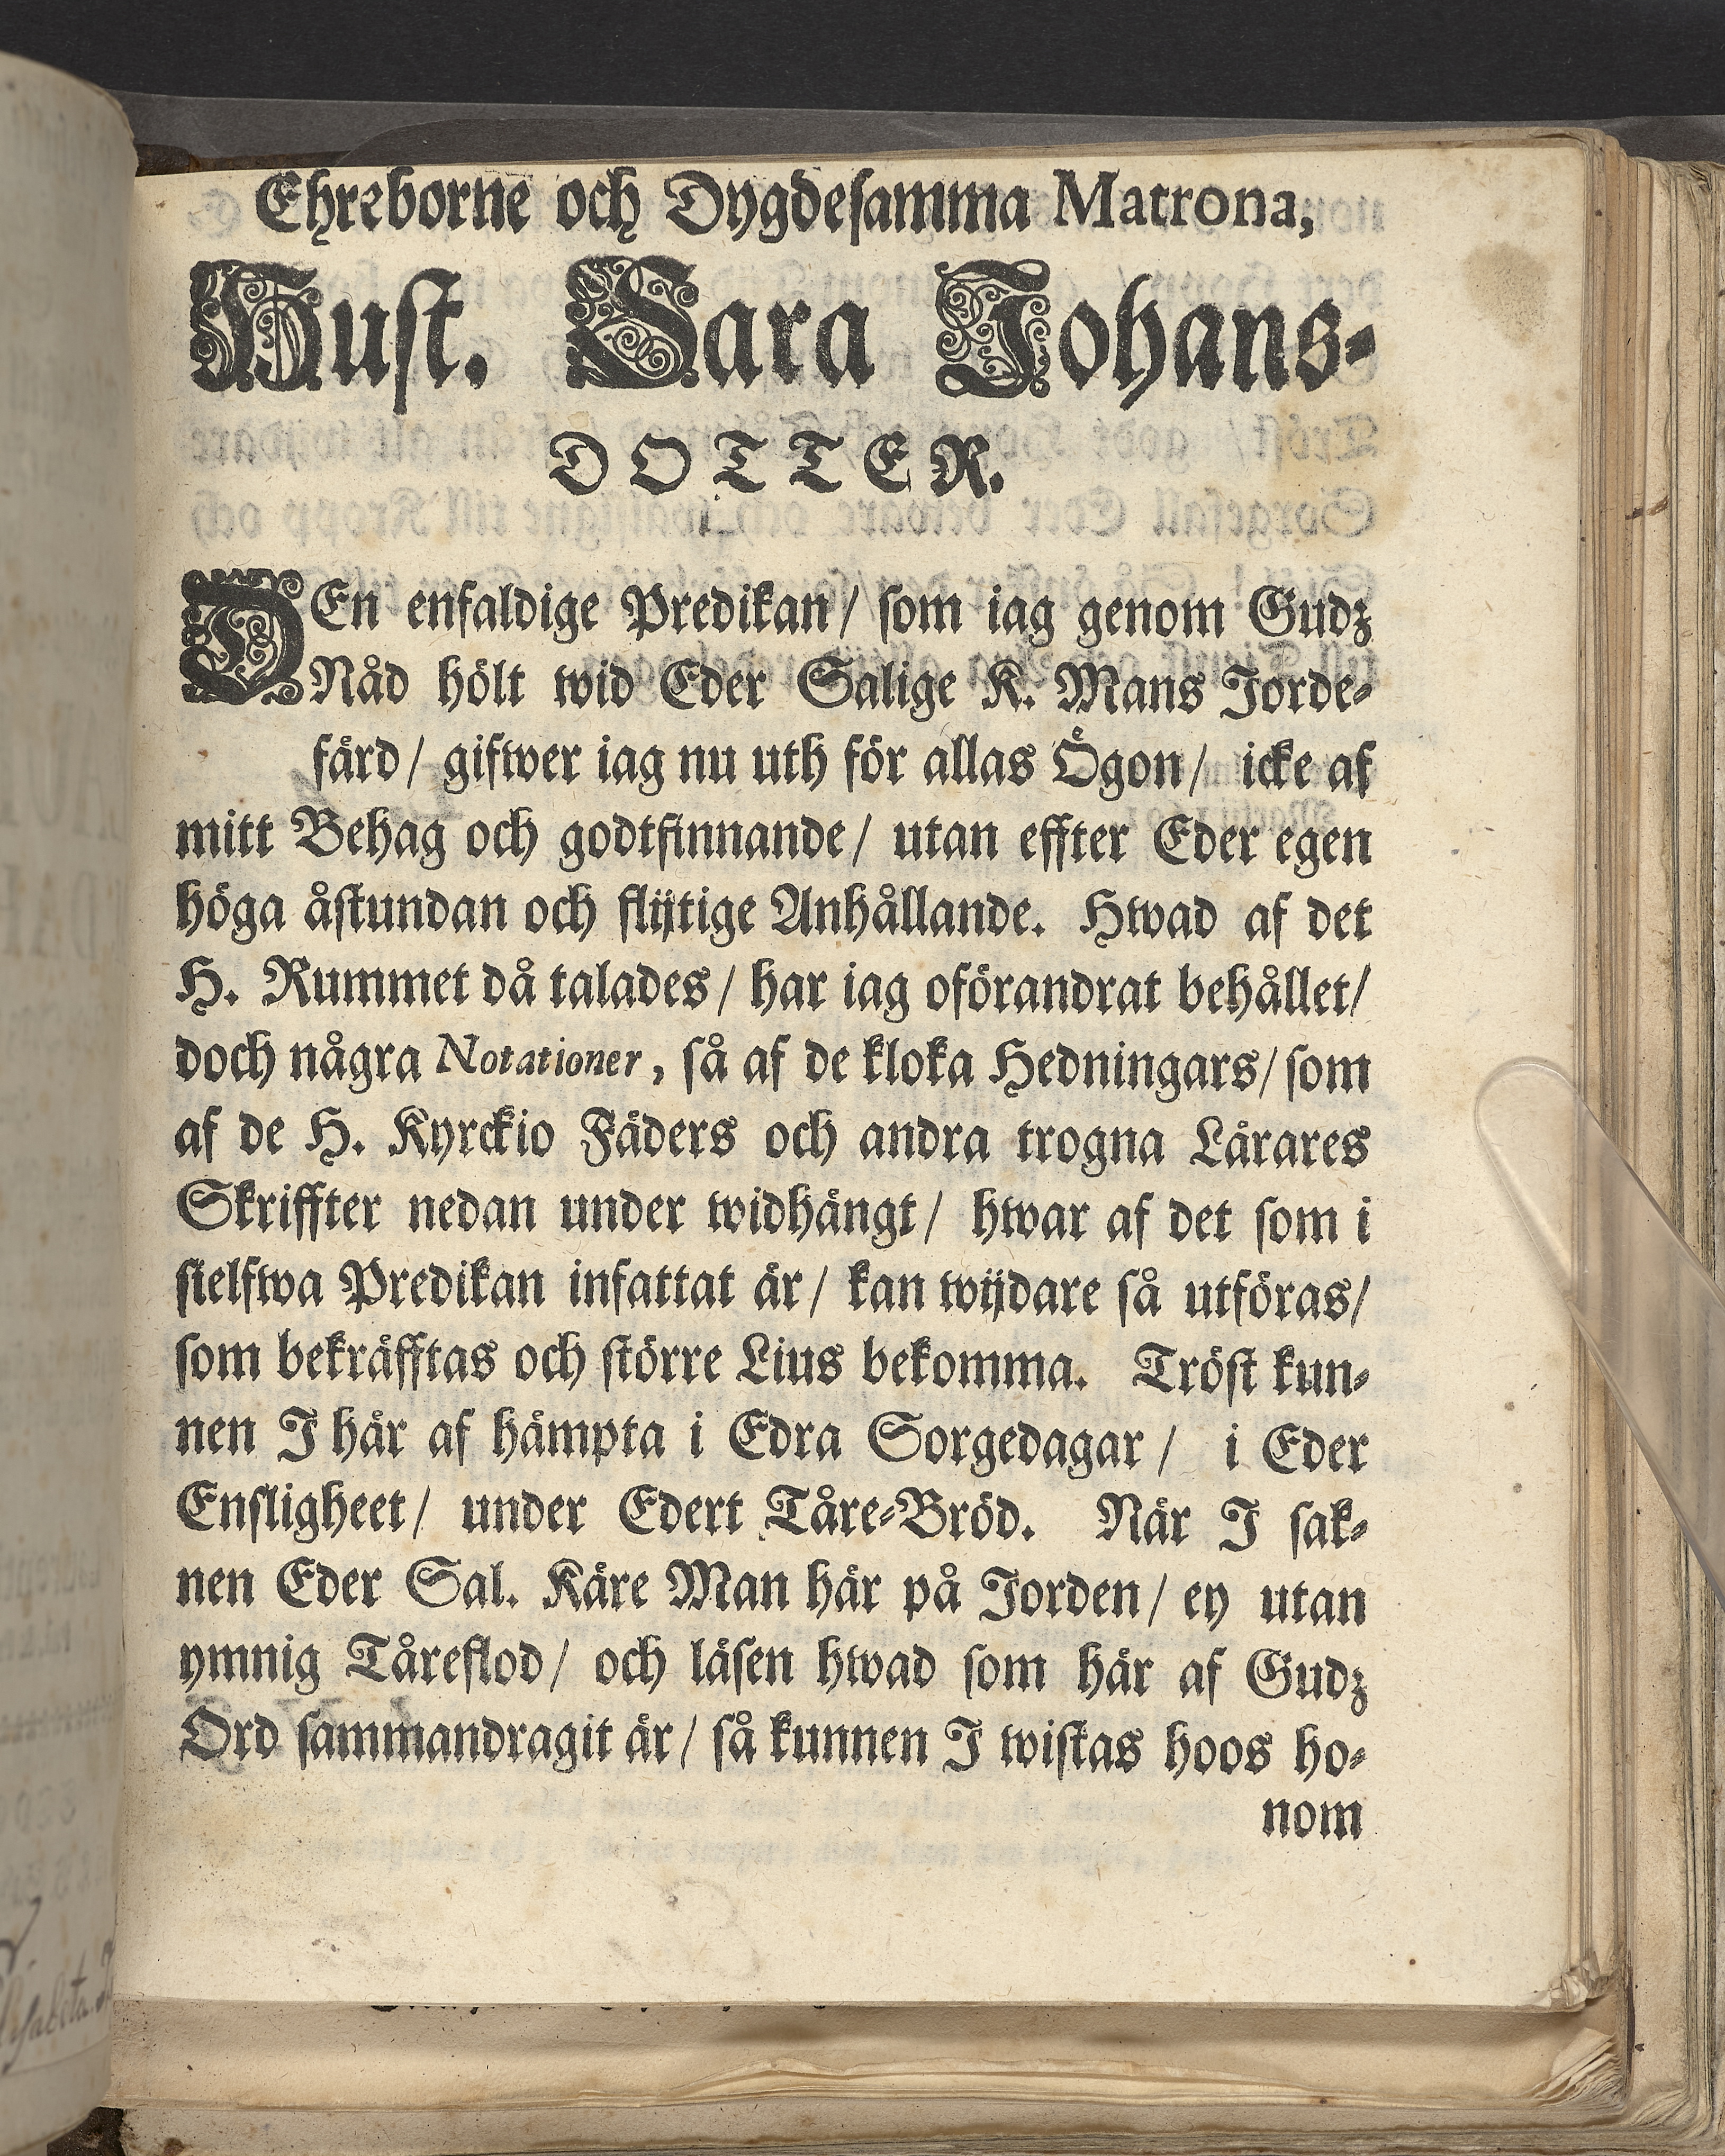 Ehreborne och Dygdesamma Matrona,
Hust. Sara Johans-
DOTTER.
DEn enfaldige Predikan/ som iag genom Gudz
Nåd hölt wid Eder Salige K. Mans Jorde-
färd/ gifwer iag nu uth för allas Ögon/ icke af
mitt Behag och godtfinnande/ utan effter Eder egen
höga åstundan och flijtige Anhållande. Hwad af det
H. Rummet då talades/ har iag oförandrat behållet/
doch några Notationer, så af de kloka Hedningars/ som
af de H. Kyrckio Fäders och andra trogna Lärares
Skriffter nedan under widhängt/ hwar af det som i
sielfwa Predikan infattat är/ kan wijdare så utföras/
som bekräfftas och större Lius bekomma. Tröst kun-
nen I här af hämpta i Edra Sorgedagar/ i Eder
Ensligheet/ under Edert Tåre-Bröd. När I sak-
nen Eder Sal. Käre Man här på Jorden/ ey utan
ymnig Tåreflod/ och läsen hwad som här af Gudz
Ord sammandragit är/ så kunnen I wistas hoos ho-
nom